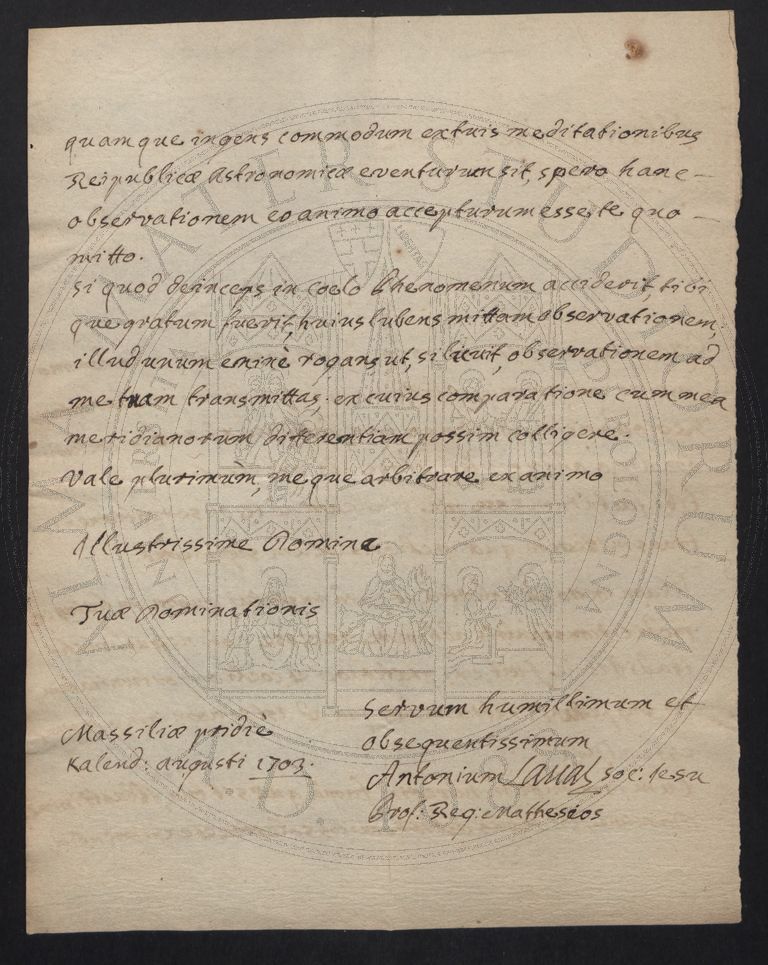 quamque ingens commodum ex tuis meditationibus
Reipublicæ Astronomicæ eventurum sit, spero hanc –
observationem eo animo accepturum esse te quo –
mitto.
Si quod deinceps in coelo Phenomenum acciderit, tibi
que gratum fuerit, huius lubens mittam observationem.
illud unum rogans ut, si licuit, observationem ad
me tuam transmittas; ex cuius comparatione cum mea
meridianorum differentiam possim colligere.
Vale plurimùm, me que arbitrare ex animo
Illustrissime Domine
Tuæ Dominationis
Servum humillimum et
obsequentissimum
Antonium Laval soc: Iesu
Prof: Reg: Matheseos
Massiliæ pridiè
Kalend: augusti 1703.
ALMA MATER STUDIORUM